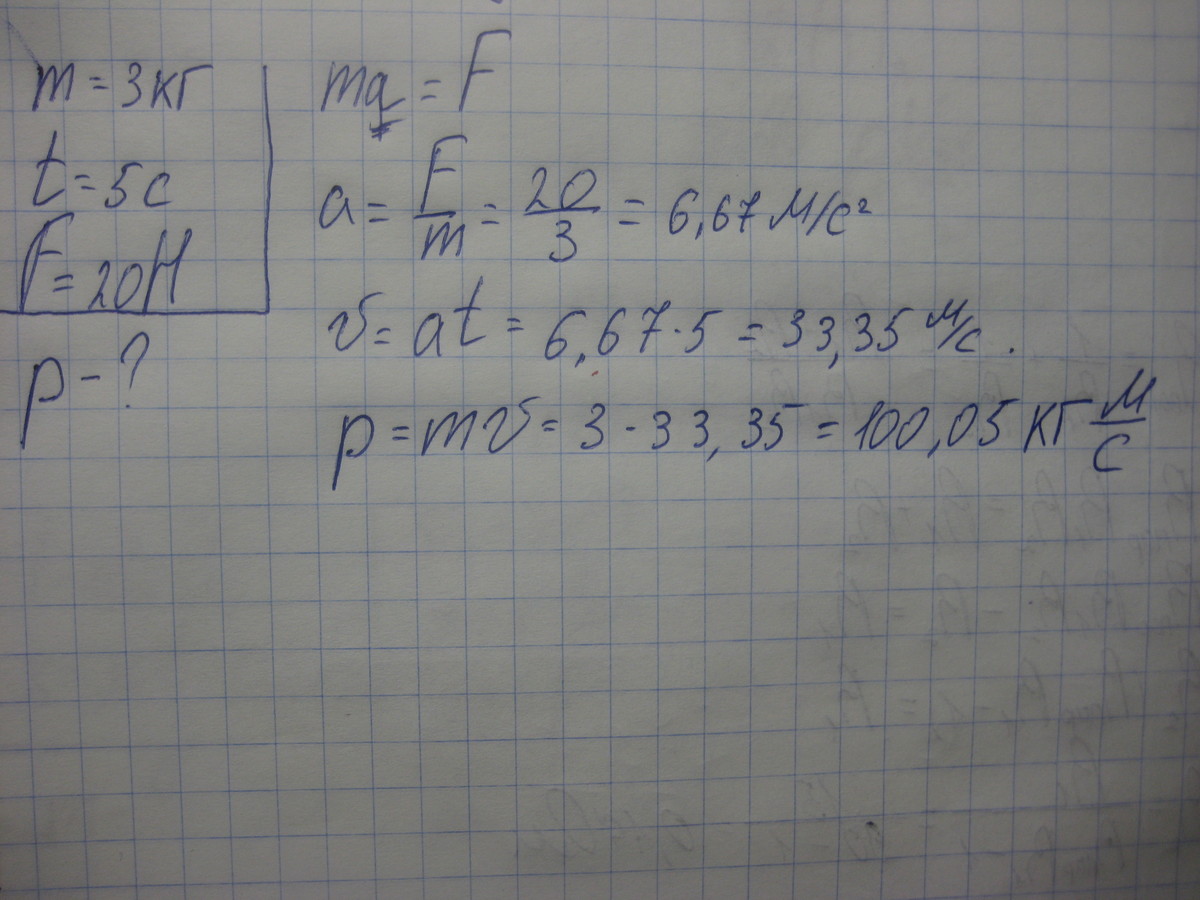 m = 3 кг
t = 5 с
F = 20 Н
p - ?
ma = F
a = F/m = 20/3 = 6,67 м/с²
v = at = 6,67 · 5 = 33,35 м/с.
p = mv = 3 · 33,35 = 100,05 кг м/с